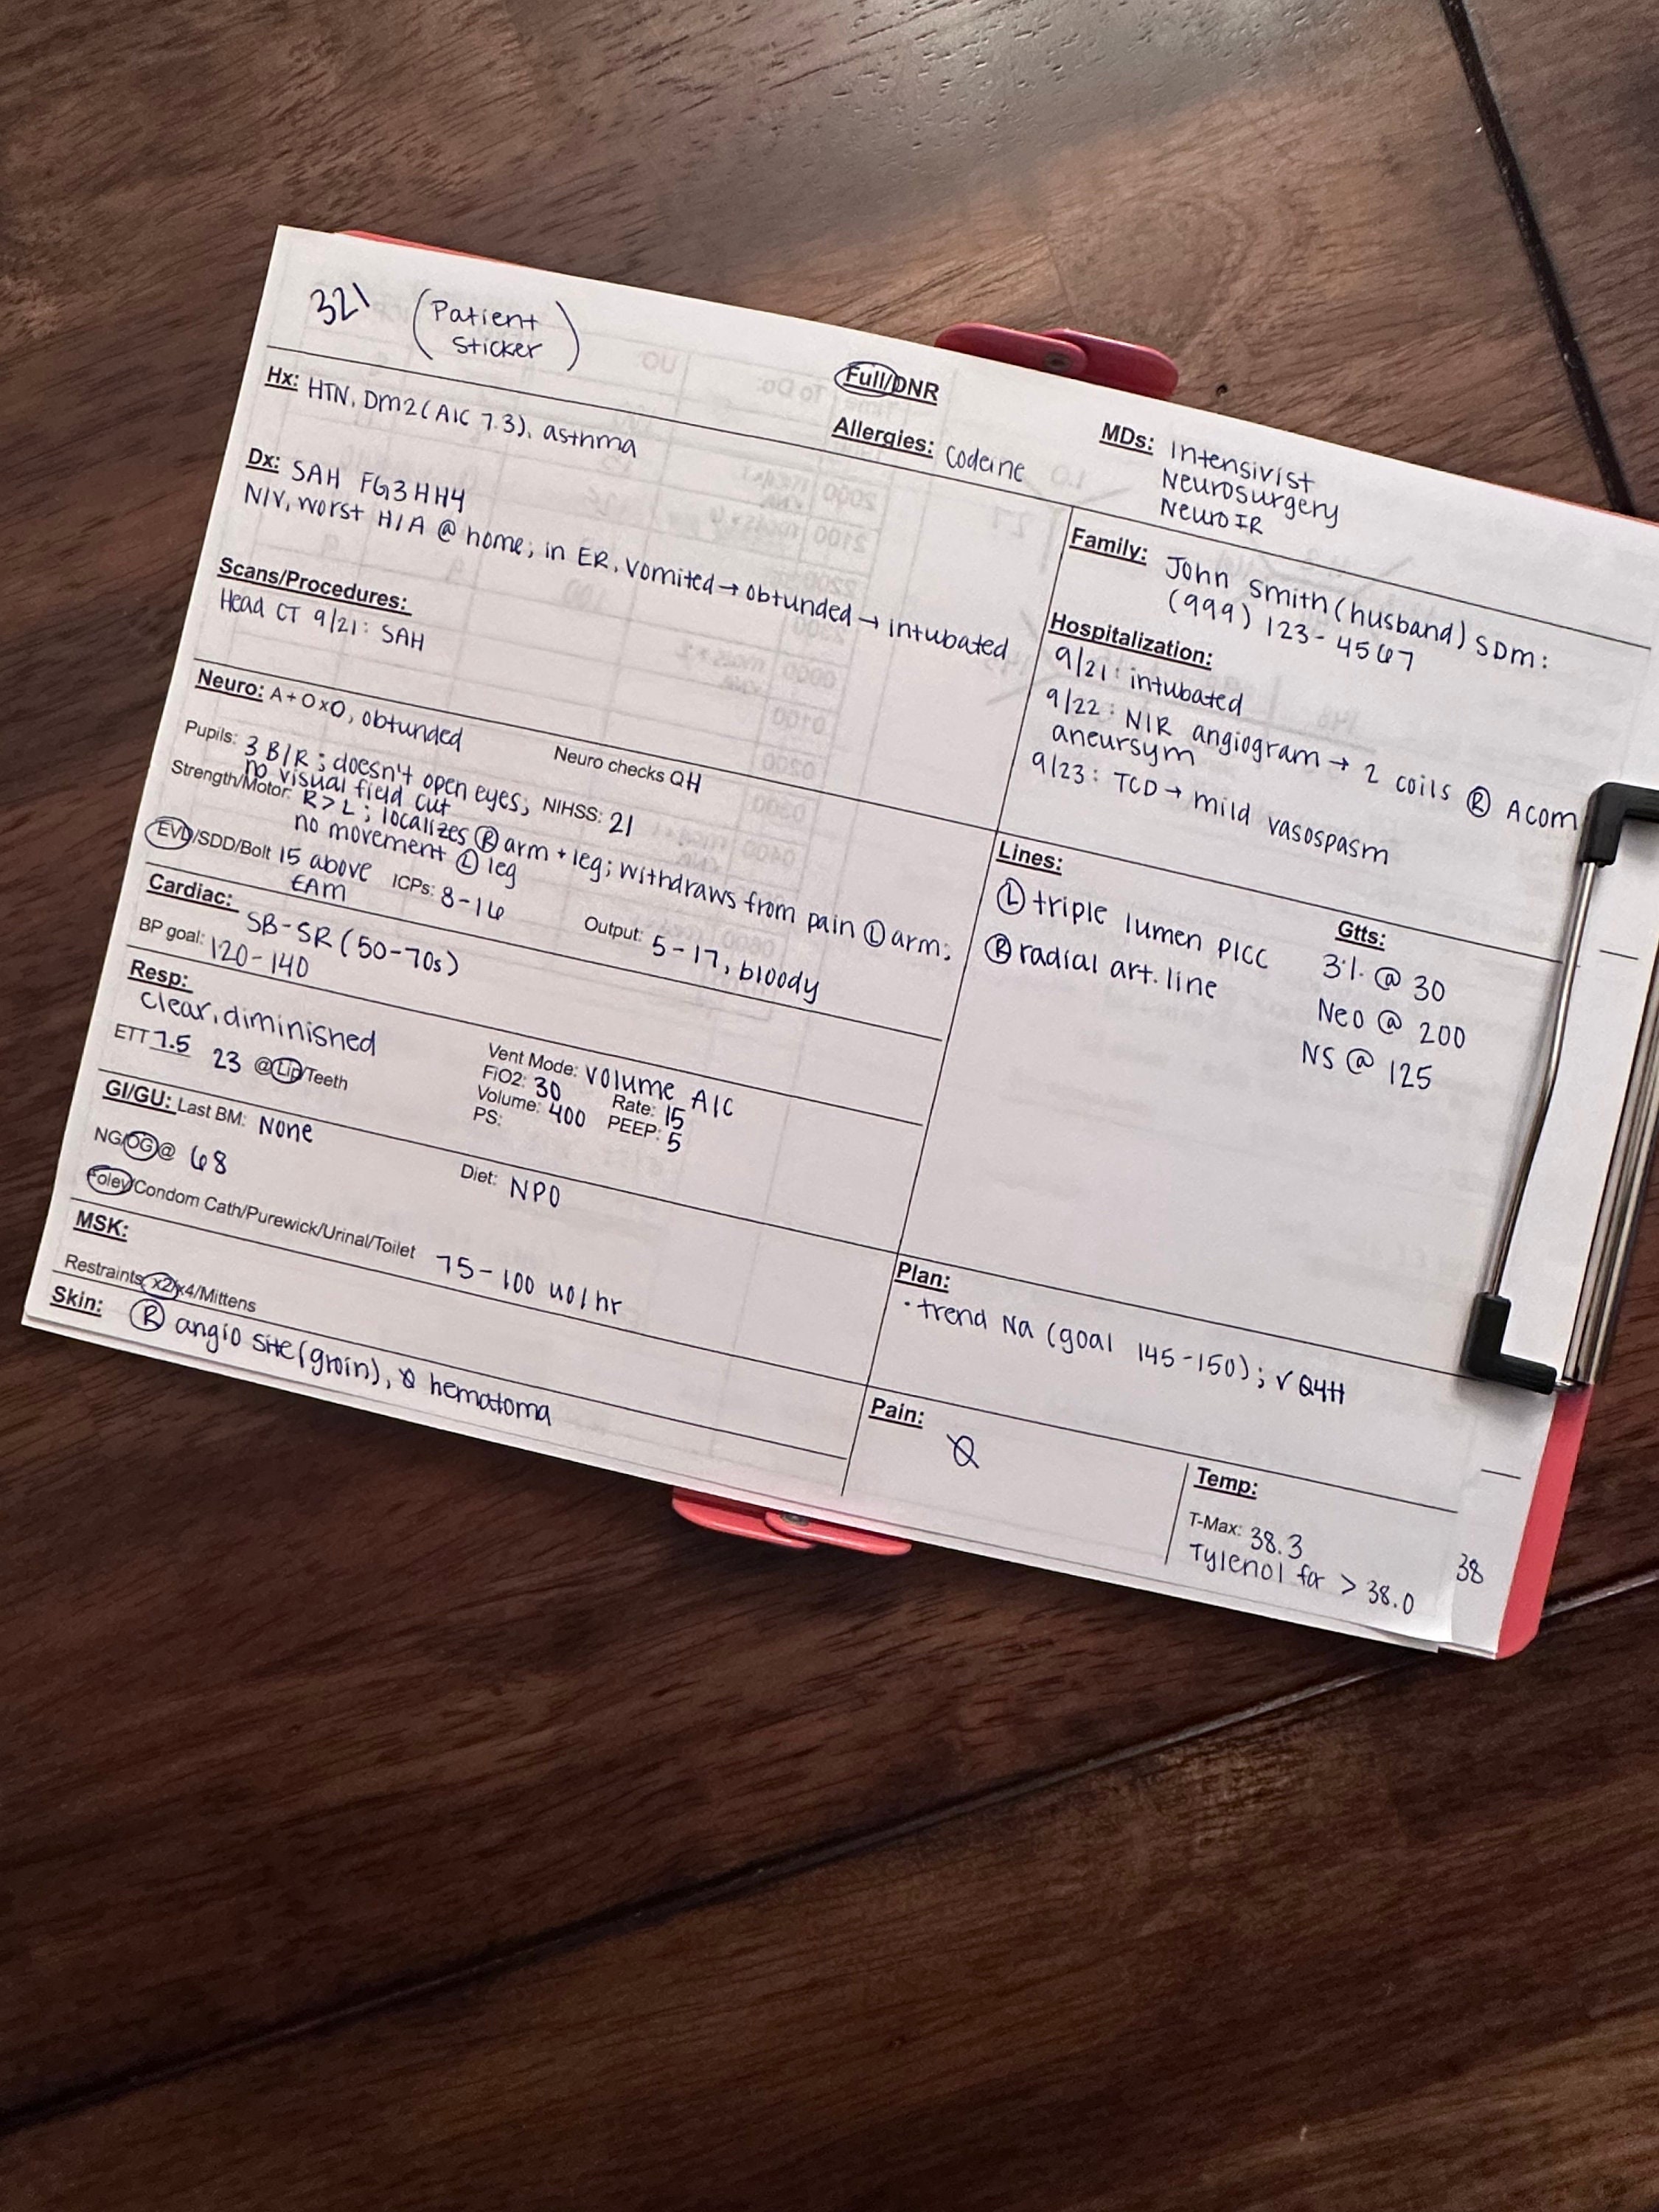 321 (Patient
Sticker)
Full/DNR
Hx: HTN, DM2 (A1C 7.3), asthma
Allergies: Codeine
MDs: Intensivist
Neurosurgery
Neuro IR
Dx: SAH FG3 HH4
N/V, worst H/A @ home; in ER, vomited → obtunded → intubated
Scans/Procedures:
Head CT 9/21: SAH
Family: John Smith (husband) SDM:
(999) 123-4567
Hospitalization:
9/21: intubated
9/22: NIR angiogram → 2 coils Ⓡ Acom
aneursym
9/23: TCD → mild vasospasm
Neuro: A+Ox0, obtunded
Neuro checks QH
Pupils: 3 B/R; doesn't open eyes;
no visual field cut
NIHSS: 21
Strength/Motor: R>L; localizes Ⓡ arm + leg; withdraws from pain Ⓛ arm;
no movement Ⓛ leg
EVD/SDD/Bolt 15 above
EAM
ICPs: 8-16
Output: 5-17, bloody
Cardiac: SB-SR (50-70s)
BP goal: 120-140
Resp:
Clear, diminished
ETT 7.5 23 @Lip/Teeth
Vent Mode: Volume A/C
FiO2: 30 Rate: 15
Volume: 400 PEEP: 5
PS:
GI/GU: Last BM: None
NG/OG@ 68
Diet: NPO
Foley/Condom Cath/Purewick/Urinal/Toilet 75-100 uo/hr
MSK:
Restraints: x2/x4/Mittens
Skin: Ⓡ angio site (groin), Ø hematoma
Lines:
Ⓛ triple lumen PICC
Ⓡ radial art. line
Gtts:
3% @ 30
Neo @ 200
NS @ 125
Plan:
· trend Na (goal 145-150); ✓ Q4H
Pain:
Ø
Temp:
T-Max: 38.3
Tylenol for > 38.0
38